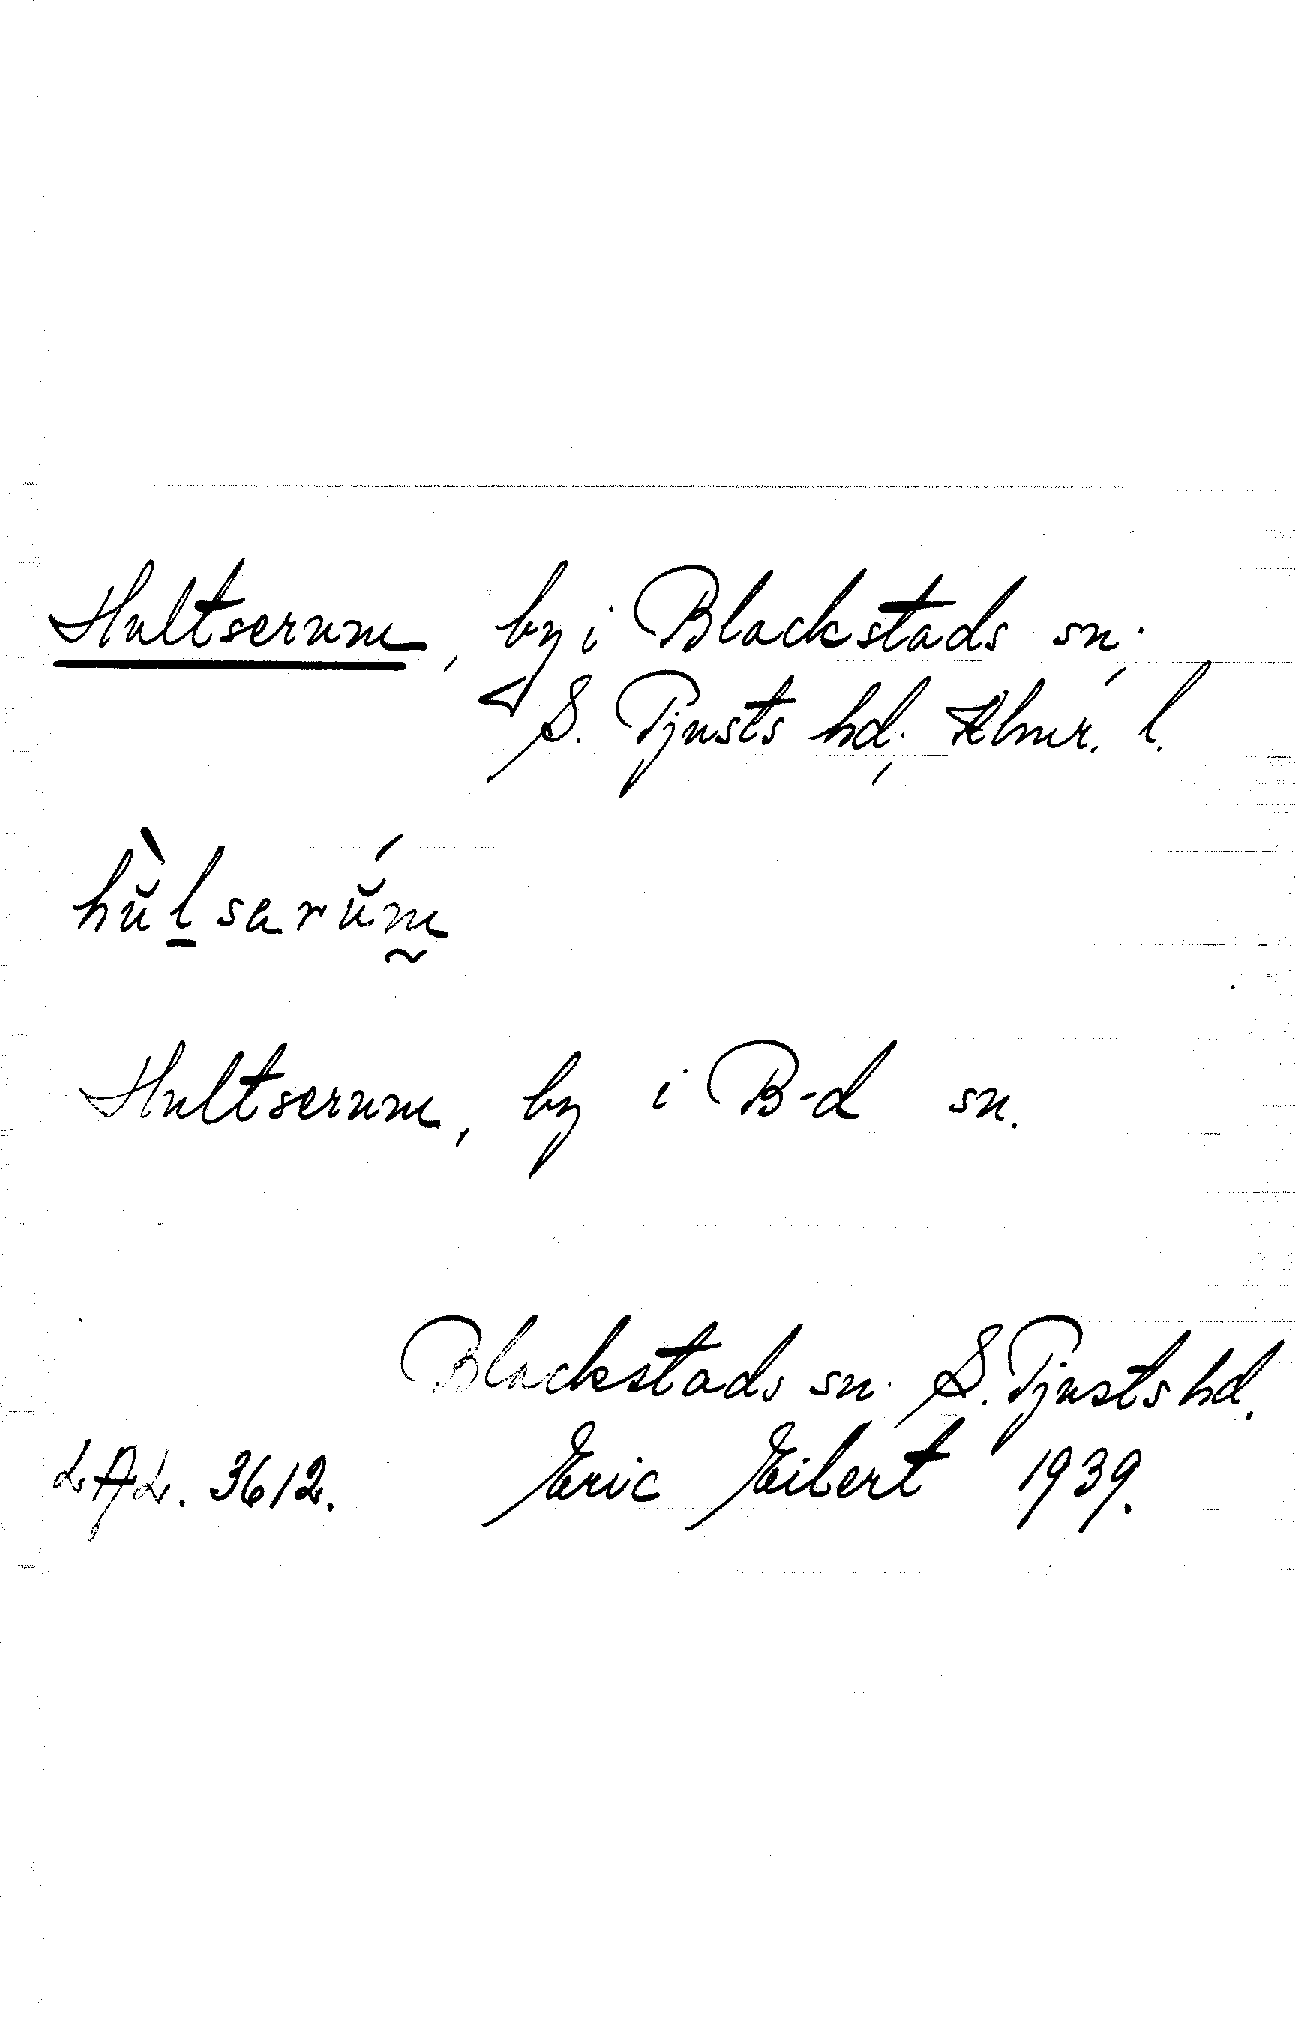 Hultserum, by i Blackstads sn;
S. Tjusts hd; Klmr. l.
hùlsarúm
Hultserum, by i B-d sn.
Blackstads sn. S. Tjusts hd.
LAL. 3612. Eric Eilert 1939.